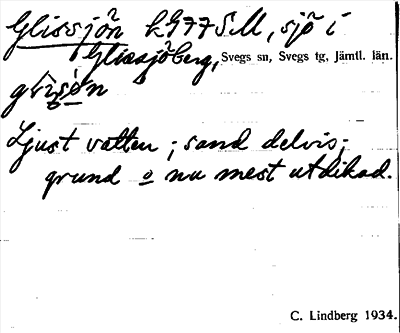 Glissjön k977 S.M, sjö i
Glissjöberg, Svegs sn, Svegs tg, Jämtl. län.
Ljust vatten; sand delvis;
grund o nu mest utdikad.
C. Lindberg 1934.